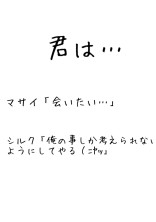 君は…
マサイ「会いたい…」
シルク「俺の事しか考えられない
ようにしてやる（ﾆﾔｯ」